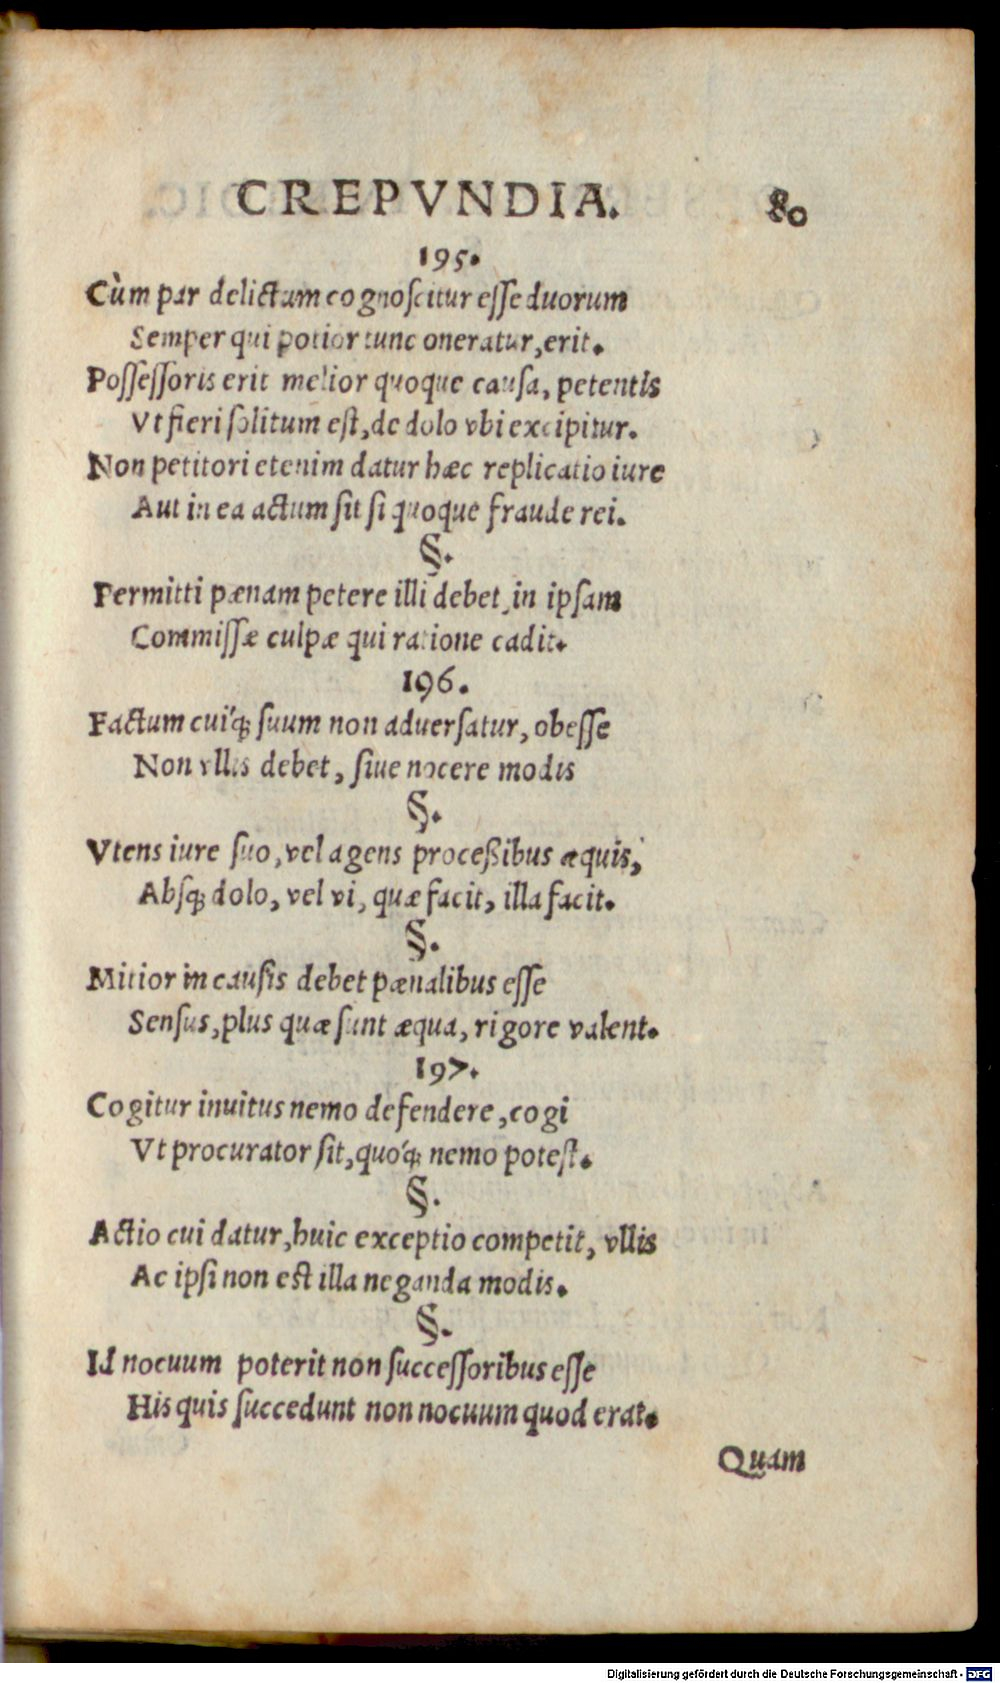 CREPVNDIA. 80
195.
Cùm par delictum cognoscitur esse duorum
Semper qui potior tunc oneratur, erit.
Possessoris erit melior quoque causa, petentis
Vt fieri solitum est, de dolo vbi excipitur.
Non petitori etenim datur hæc replicatio iure
Aut in ea actum sit si quoque fraude rei.
§.
Permitti pœnam petere illi debet, in ipsam
Commissæ culpæ qui ratione cadit.
196.
Factum cuíq; suum non aduersatur, obesse
Non vllis debet, siue nocere modis
§.
Vtens iure suo, vel agens proceßibus æquis,
Absq; dolo, vel vi, quæ facit, illa facit.
§.
Mitior in causis debet pœnalibus esse
Sensus, plus quæ sunt æqua, rigore valent.
197.
Cogitur inuitus nemo defendere, cogi
Vt procurator sit, quóq; nemo potest.
§.
Actio cui datur, huic exceptio competit, vllis
Ac ipsi non est illa neganda modis.
§.
Id nocuum poterit non successoribus esse
His quis succedunt non nocuum quod erat.
Quam
Digitalisierung gefördert durch die Deutsche Forschungsgemeinschaft - DFG